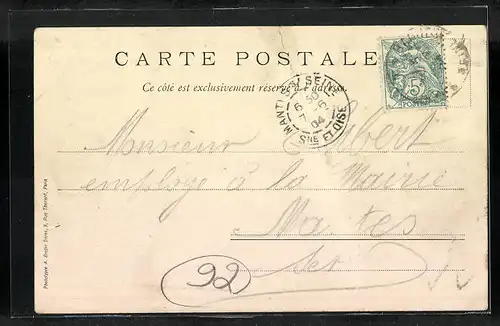 CARTE POSTALE
Ce côté est exclusivement réservé à l'adresse.
MANTES S/ SEINE
6 30
7 -6
04
SNE ET OISE
5
Monsieur
employé à la Mairie
Mantes
92
Phototypie A. Breger frères, 9, Rue Thénard, Paris